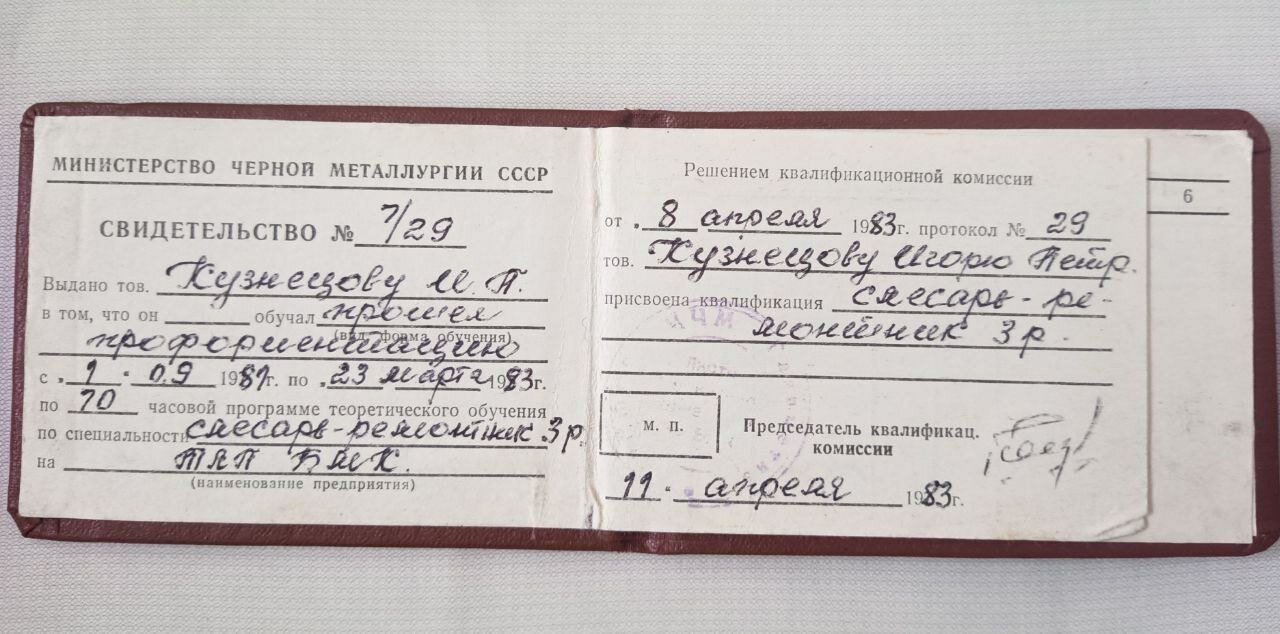 МИНИСТЕРСТВО ЧЕРНОЙ МЕТАЛЛУРГИИ СССР
СВИДЕТЕЛЬСТВО № 7/29
Выдано тов. Кузнецову И. П.
в том, что он обучал прошел
(вид, форма обучения)
профориентацию
с „1“ 09 1981г. по „23 марта 1983г.
по 70 часовой программе теоретического обучения
по специальности слесарь-ремонтник 3 р.
на ТЛП БМК.
(наименование предприятия)
Решением квалификационной комиссии
от „8 апреля 1983г. протокол № 29
тов. Кузнецову Игорю Петр.
присвоена квалификация слесарь-ре-
монтник 3 р.
МЧМ
м. п.
Председатель квалификац.
комиссии
11“ апреля 1983г.
6